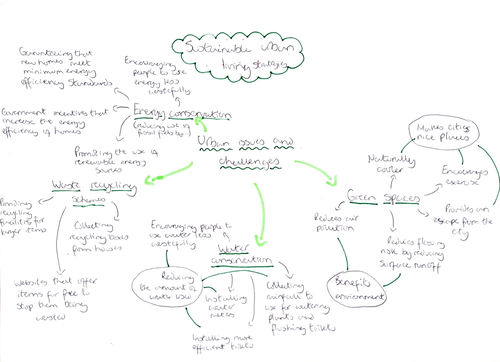 Sustainable urban
living strategies
Guaranteeing that
new homes meet
minimum energy
efficiency standards
Encouraging
people to use
energy less
wastefully
Government incentives that
increase the energy
efficiency of homes
Energy conservation
(reducing use of
fossil fuels)
Promoting the use of
renewable energy
sources
Urban issues and
challenges
Makes cities
nice places
Naturally
cooler
Encourages
exercise
Provides an
escape from the
city
Green Spaces
Reduces air
pollution
Reduces flooding
risk by reducing
surface runoff
Benefits
environment
Waste recycling
Schemes
Providing
recycling
facilities for
larger items
Collecting
recycling boxes
from houses
Websites that offer
items for free to
stop them being
wasted
Encouraging people to
use water less
wastefully
Water
conservation
Reducing
the amount of
water used
Installing
water
meters
Installing more
efficient toilets
Collecting
rainfall to
use for watering
plants and
flushing toilets